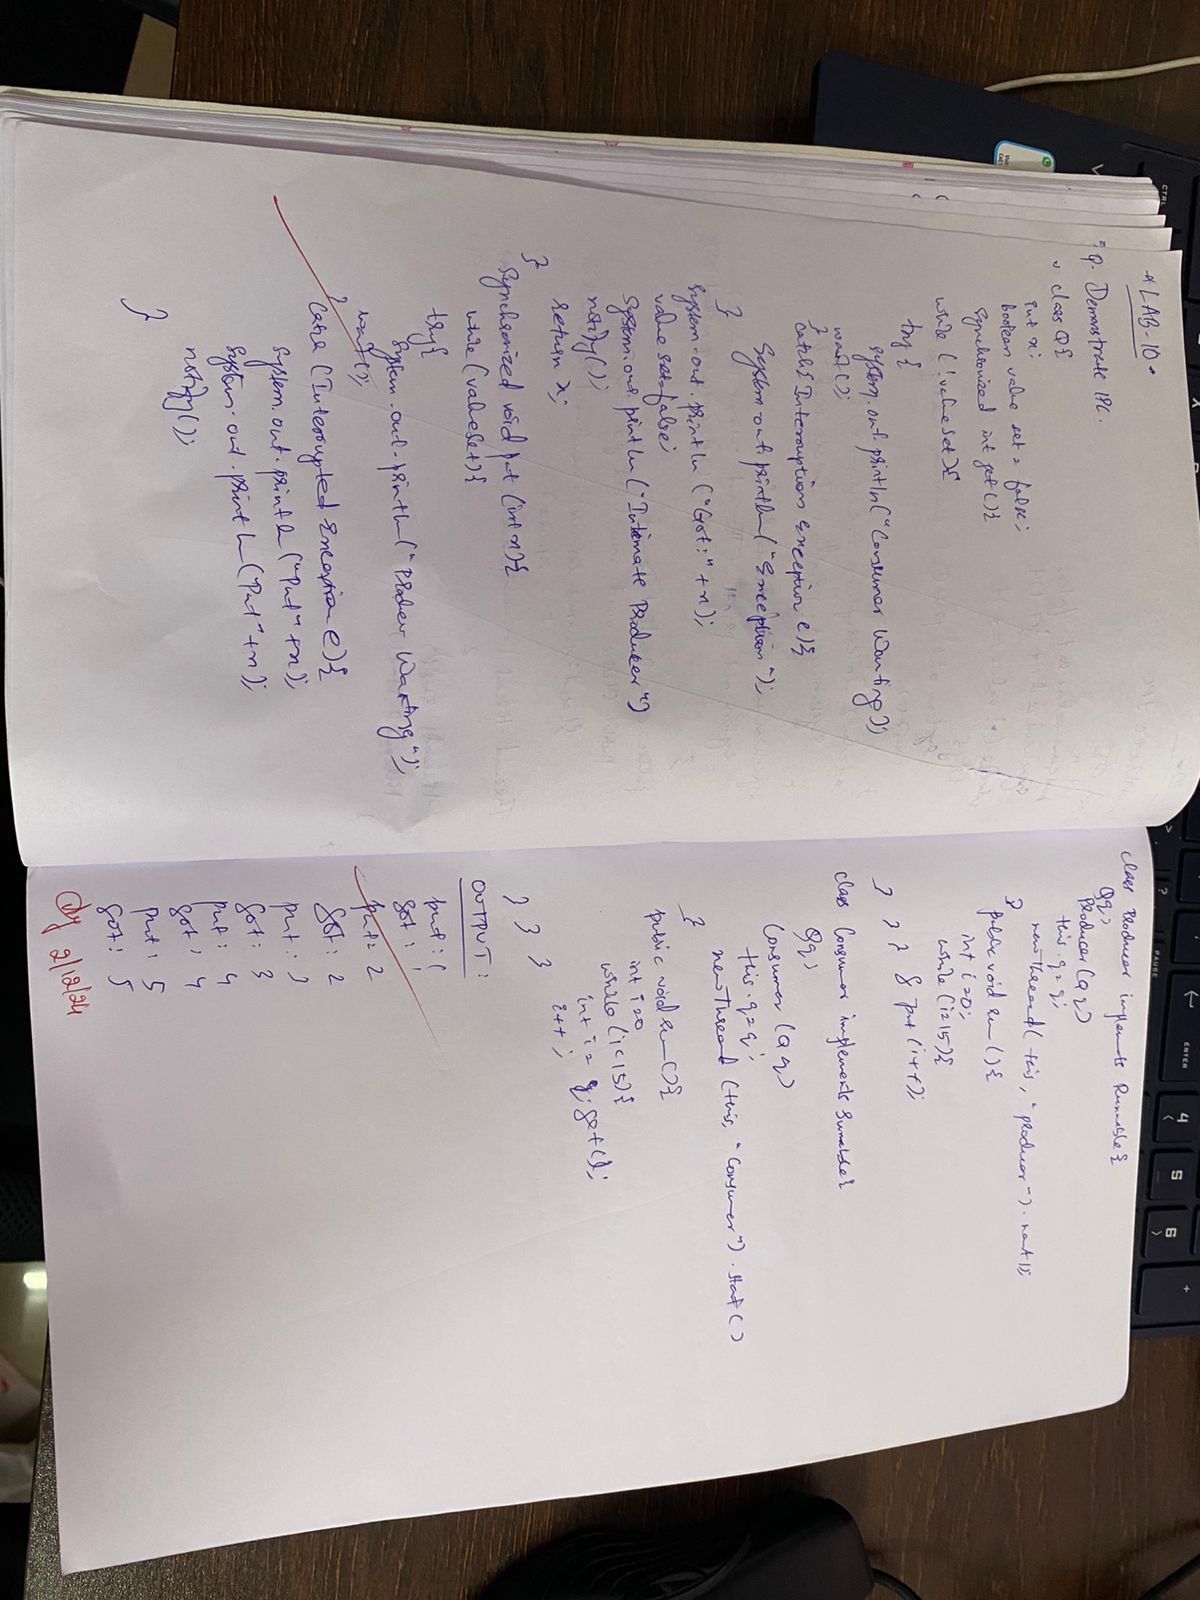 LAB-10
Q. Demonstrate IPC.
class Q{
int x;
boolean value set = false;
synchronized int get(){
while (!value set){
try{
system.out.println("Consumer Waiting");
wait();
}
catch(Interruption exception e){
System.out.println("Exception");
}
System.out.println("Got:" + n);
value set=false;
System.out.println("Intimate Producer")
notify();
return x;
}
Synchronized void put (int n){
while (valueSet){
try{
System.out.println(" Waiting");
wait();
}
catch (Interrupted Exception e){
System.out.println("Put" + n);
System.out.println("Put" + n);
notify();
}
class Producer implements Runnable{
Q q;
Producer (Q q)
this.q = q;
new Thread (this, "producer").
}
public void run(){
int i = 0;
while (i 15){
put (i++);
}
}
}
class Consumer implements
Q q;
Consumer (Q q)
this.q = q;
new Thread (this, "Consumer").start()
}
public void run(){
int i = 0
while (i<15){
int i = q.get();
i++;
}
}
}
OUTPUT:
put: 1
got: 1
put: 2
got: 2
put: 3
got: 3
put: 4
got: 4
put: 5
got: 5
2/12/24
CTRL
PAUSE
ENTER
4
5
6
+